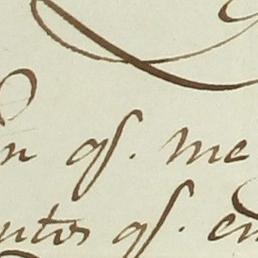 n qs. me
ntos qs. en